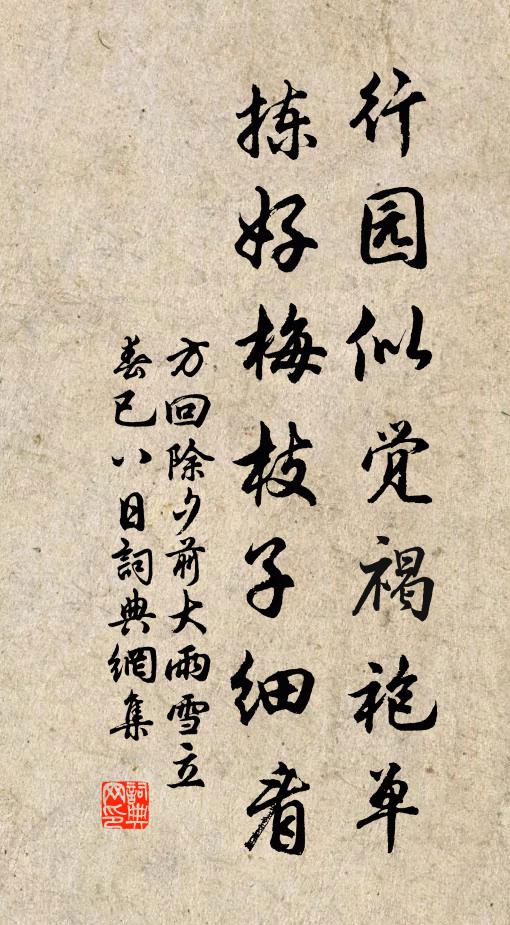 行园似觉褐袍单
拣好梅枝子细看
方回除夕前大雨雪立
春已八日詞典網集
詞典
网印